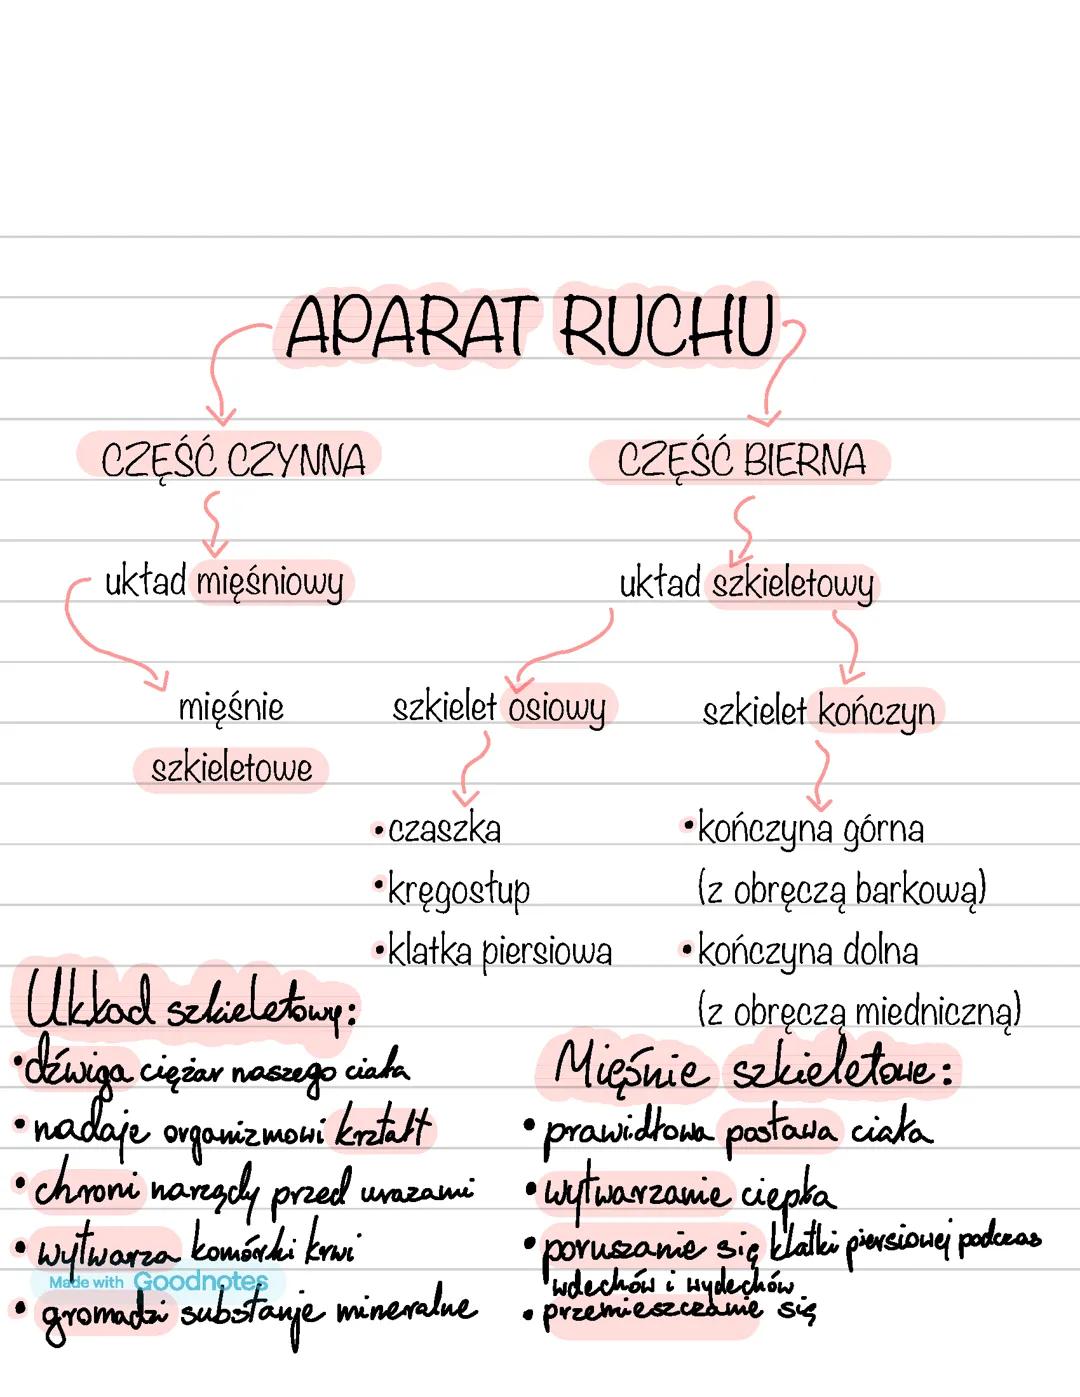 APARAT RUCHU
CZĘŚĆ CZYNNA
CZĘŚĆ BIERNA
układ mięśniowy
układ szkieletowy
mięśnie
szkieletowe
szkielet osiowy
szkielet kończyn
•czaszka
•kręgosłup
•klatka piersiowa
•kończyna górna
(z obręczą barkową)
•kończyna dolna
(z obręczą miedniczną)
Układ szkieletowy:
•dźwiga ciężar naszego ciała
•nadaje organizmowi kształt
•chroni narządy przed urazami
•wytwarza komórki krwi
Made with Goodnotes
•gromadzi substanje mineralne
Mięśnie szkieletowe:
•prawidłowa postawa ciała
•wytwarzanie ciepła
•poruszanie się klatki piersiowej podczas
wdechów i wydechów
•przemieszczanie się